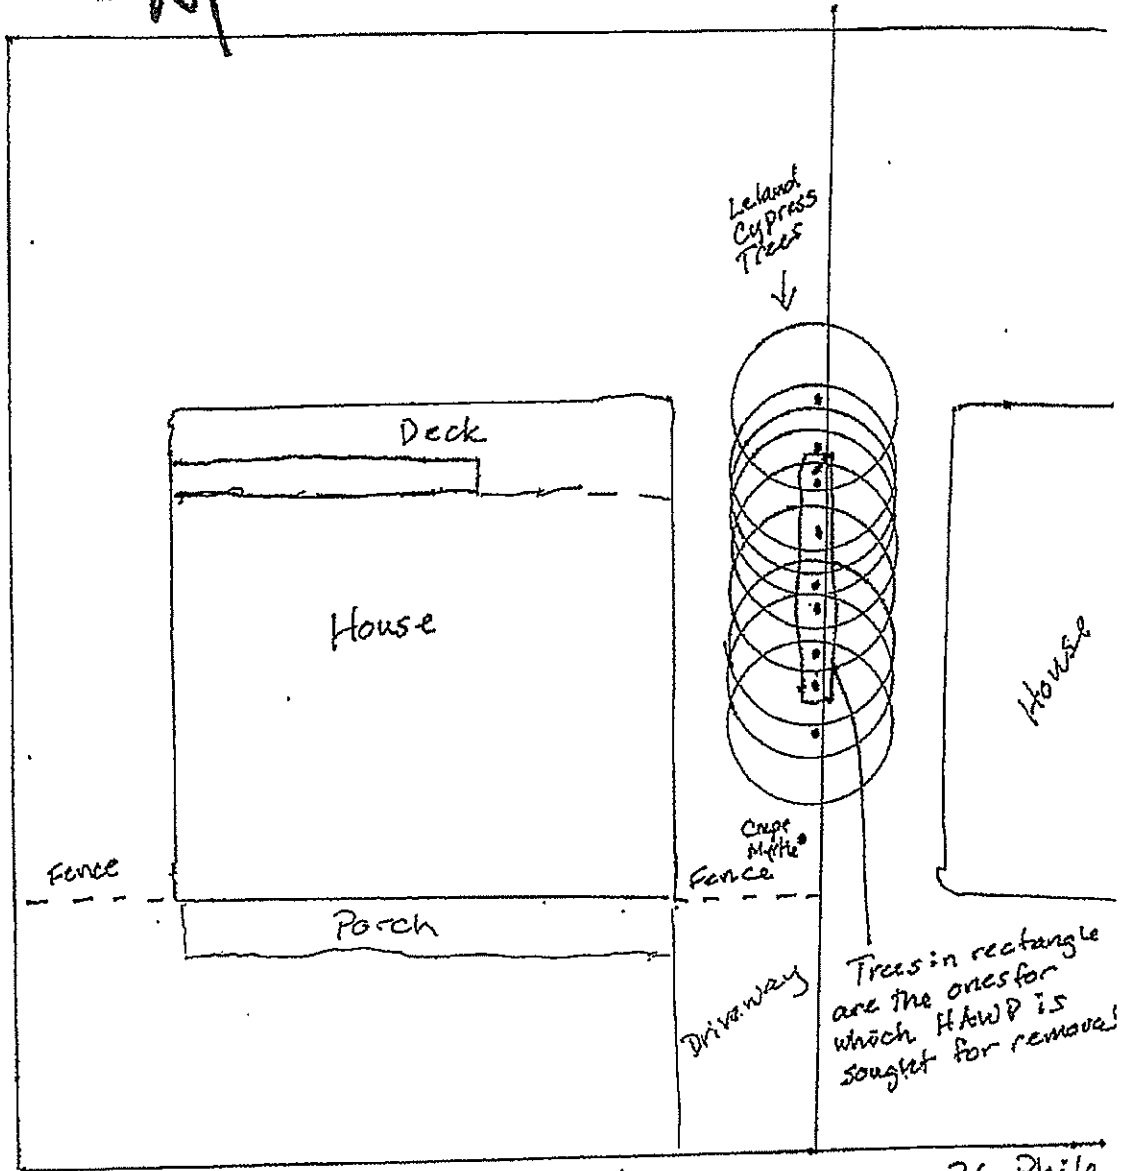 Leland
Cypress
Trees
Deck
House
House
Crepe
Myrtle
Fence
Fence
Porch
Driveway
Trees in rectangle
are the ones for
which HAWP is
sought for removal